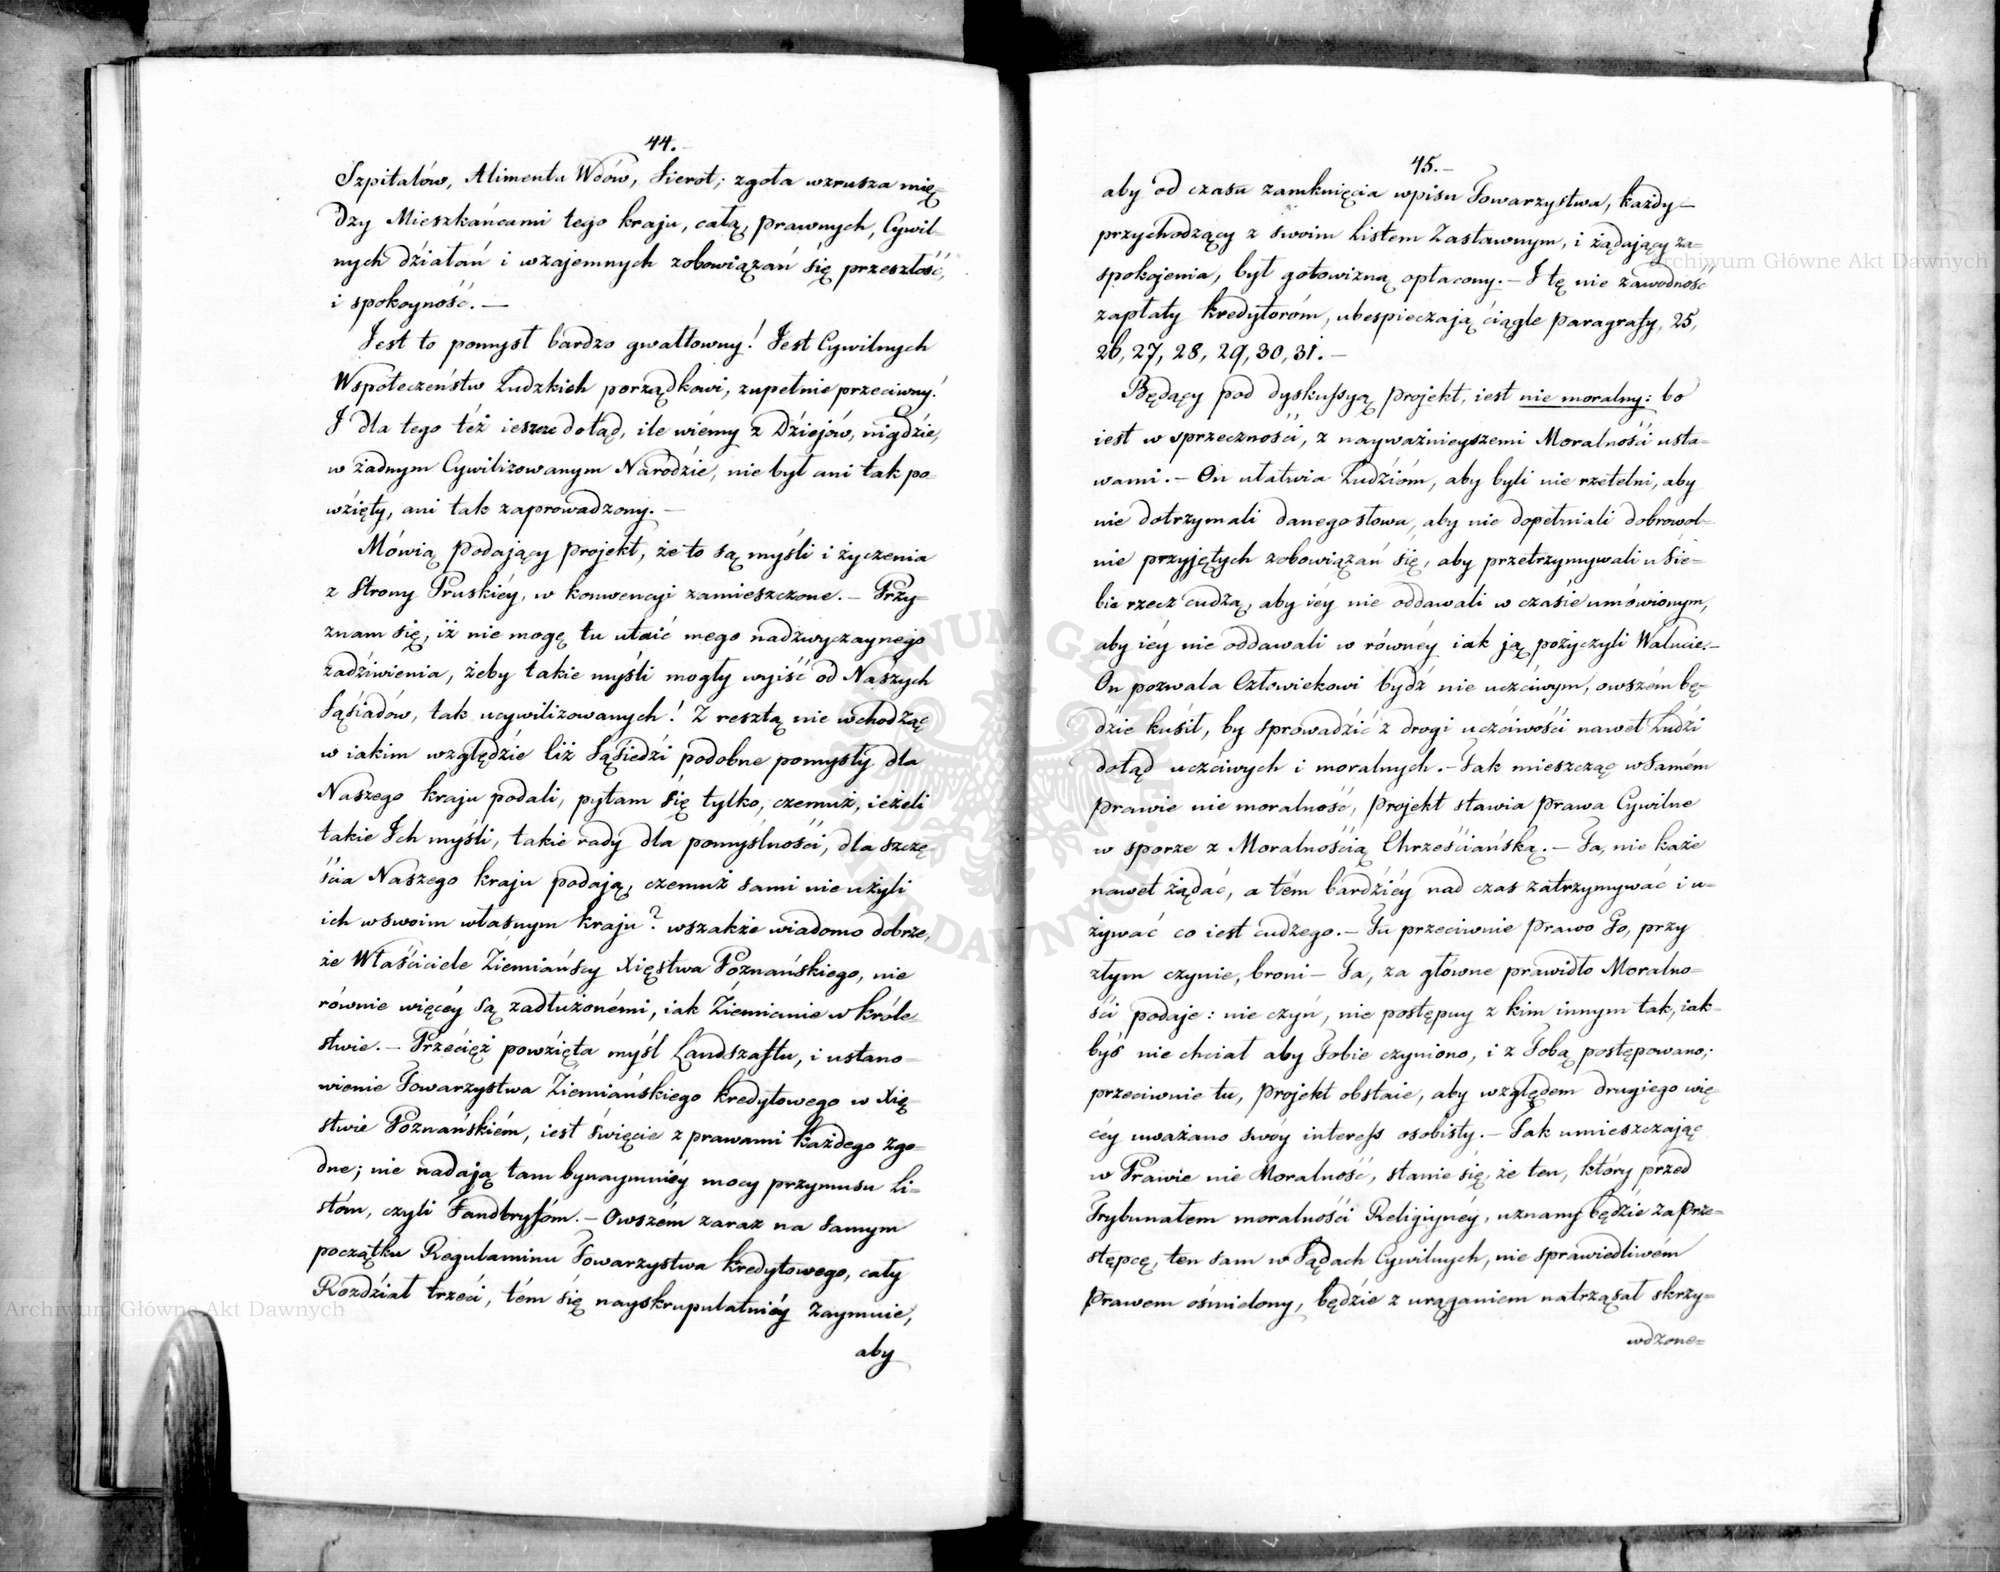 44.
Szpitalów, Alimenta Wdów, Sierot; zgoła wzrusza mię-
dzy Mieszkańcami tego kraju, całą, prawnych, Cywil-
nych działań i wzajemnych zobowiązań się przeszłość,
i spokoyność. —
Jest to pomysł bardzo gwałtowny! Jest Cywilnych
Społeczeństw Ludzkich porządkowi, zupełnie przeciwny!
I dla tego téż ieszcze dotąd, ile wiémy z Dziejów, nigdzie,
w żadnym Cywilizowanym Narodzie, nie był ani tak po-
wzięty, ani tak zaprowadzony. —
Mówią podający projekt, że to są myśli i życzenia
z Strony Pruskiéy, w konwencyi zamieszczone. — Przy-
znam się, iż nie mogę tu utaić mego nadzwyczaynego
zadziwienia, żeby takie myśli mogły wyiść od Naszych
Sąsiadów, tak ucywilizowanych! Z resztą nie wchodząc
w iakim względzie liż Sąsiedzi podobne pomysły dla
Naszego kraju podali, pytam się tylko, czemuż, ieżeli
takie Ich myśli, takie rady dla pomyślności, dla szczę
ścia Naszego kraju podają, czemuż sami nie użyli
ich w swoim własnym kraju? wszakże wiadomo dobrze,
że Właściciele Ziemiańscy Xięstwa Poznańskiego, nie
równie więcéy są zadłużonémi, iak Ziemianie w Króle-
stwie. — Przecięż powzięta myśl Landszaftu, i ustano-
wienie Towarzystwa Ziemiańskiego kredytowego w Xię-
stwie Poznańskiém, iest święcie z prawami każdego zgo-
dne; nie nadają tam bynaymniéy mocy przymusu Li-
stóm, czyli Fandbryfóm. — Owszém zaraz na samym
początku Regulaminu Towarzystwa kredytowego, cały
Rozdział trzeci, tém się nayskrupulatniéy zaymuie,
aby
45. —
aby od czasu zamknięcia wpisu Towarzystwa, każdy —
przychodzący z swoim Listem Zastawnym, i żądający za-
spokojenia, był gotowizną opłacony. — I tę nie zawodność
zapłaty kredytoróm, ubespieczają ciągle paragrafy, 25,
26, 27, 28, 29, 30, 31. —
Będący pod dyskussyą projekt, iest nie moralny: bo
iest w sprzeczności, z nayważnieyszemi Moralności usta-
wami. — On ułatwia Ludzióm, aby byli nie rzetelni, aby
nie dotrzymali danego słowa, aby nie dopełniali dobrowol-
nie przyjętych zobowiązań się, aby przetrzymywali u sie-
bie rzecz cudzą, aby iéy nie oddawali w czasie umówionym,
aby iéy nie oddawali w równéy iak ją pożyczyli Walucie. —
On pozwala Człowiekowi bydź nie uczciwym, owszém bę-
dzie kusił, by sprowadzić z drogi uczciwości nawet Ludzi
dotąd uczciwych i moralnych. — Tak mieszcząc w samém
prawie nie moralność, projekt stawia prawa Cywilne
w sporze z Moralnością Chrześciańską. — Ta, nie każe
nawet żądać, a tém bardziéy nad czas zatrzymywać i u-
żywać co iest cudzego. — Tu przeciwnie prawo Go, przy
złym czynie, broni — Ta, za główne prawidło Moralno-
ści podaje: nie czyń, nie postępuy z kim innym tak, iak-
byś nie chciał aby Tobie czyniono, i z Tobą postępowano;
przeciwnie tu, projekt obstaie, aby względem drugiego wię
céy uważano swóy interess osobisty. — Tak umieszczając
w Prawie nie Moralność, stanie się, że ten, który przed
Trybunałem moralności Religiynéy, uznany będzie za prze-
stępcę, ten sam w Sądach Cywilnych, nie sprawiedliwém
prawem ośmielony, będzie z urąganiem natrząsał skrzy-
wdzone-
Archiwum Główne Akt Dawnych
Archiwum Główne Akt Dawnych